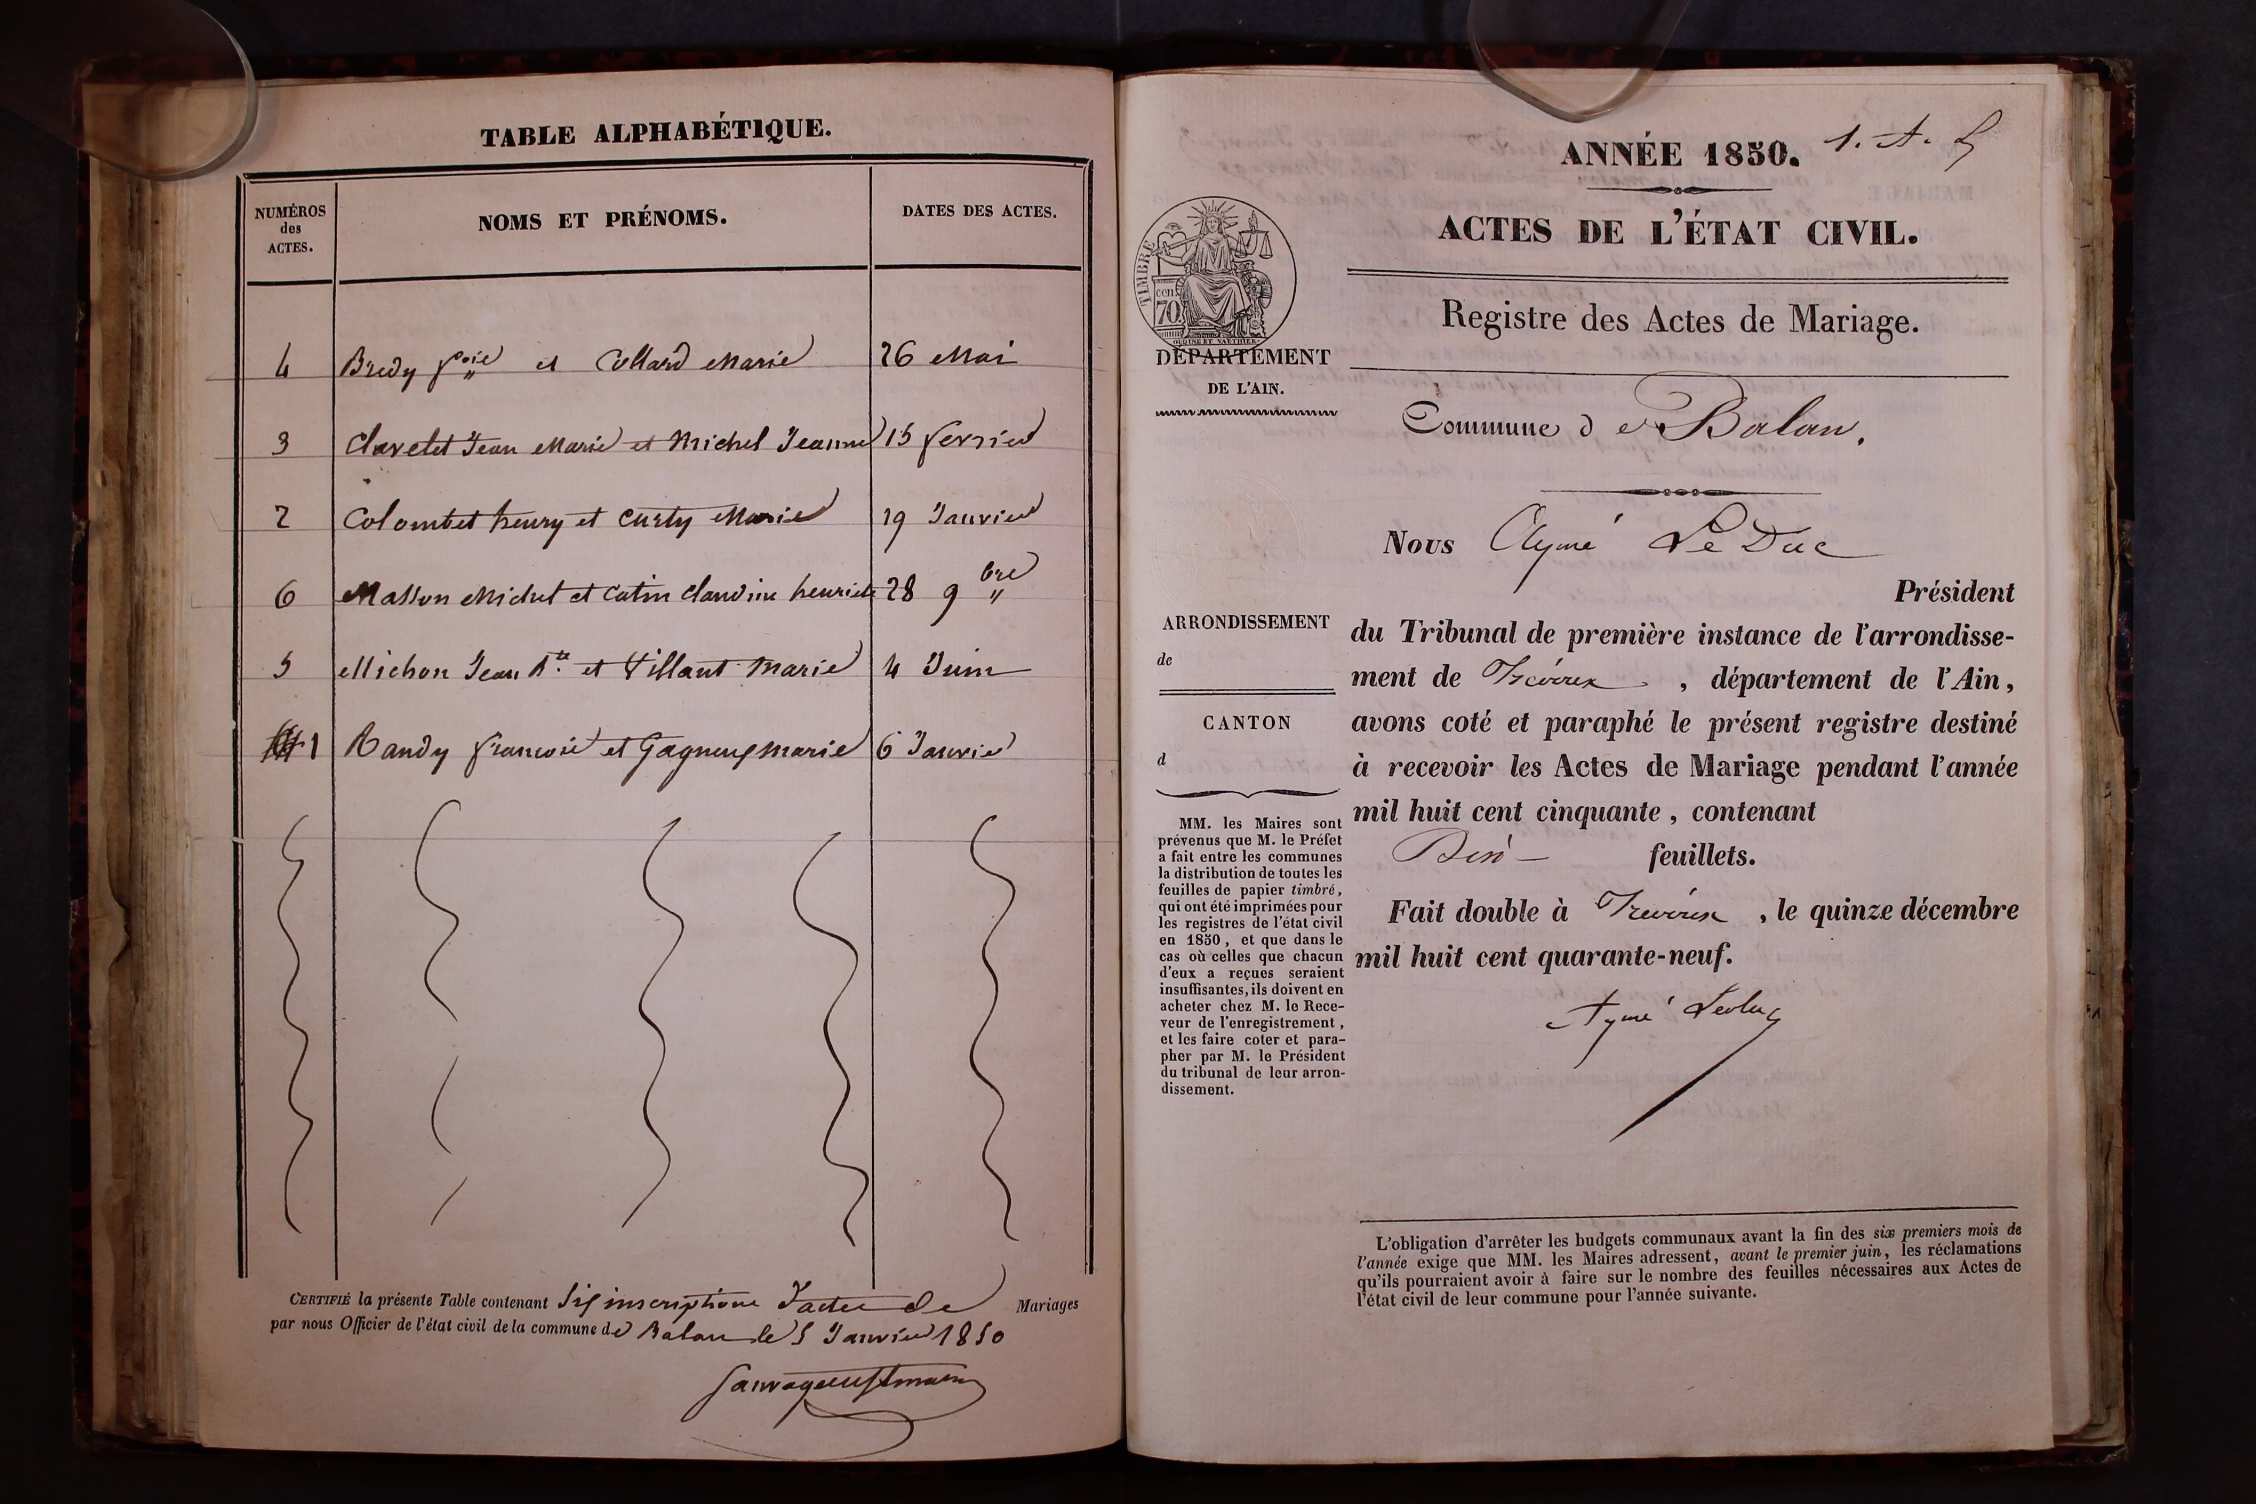 TABLE ALPHABÉTIQUE.
NUMÉROS
des
ACTES.
NOMS ET PRÉNOMS.
DATES DES ACTES.
4 Bredy fcois et Collard Marie 26 Mai
3 Clavelet Jean Marie et Michel Jeanne 15 fevrier
2 Colombet henry et Curty Marie 19 Janvier
6 Masson Michel et Catin Claudine henriete 28 9bre
5 Michon Jean Bte et Villant Marie 4 Juin
1 Randy francois et Gagneux marie 6 Janvier
CERTIFIÉ la présente Table contenant Six inscriptions d'actes de Mariages
par nous Officier de l'état civil de la commune de Balan le 5 Janvier 1850
ANNÉE 1850.
1. A. L
ACTES DE L'ÉTAT CIVIL.
Registre des Actes de Mariage.
TIMBRE
cen
70
DÉPARTEMENT
DE L'AIN.
Commune de Balan.
Nous Aymé Le Duc
Président
ARRONDISSEMENT
de
CANTON
d
du Tribunal de première instance de l'arrondisse-
ment de Trévoux, département de l'Ain,
avons coté et paraphé le présent registre destiné
à recevoir les Actes de Mariage pendant l'année
mil huit cent cinquante, contenant
feuillets.
Fait double à Trévoux, le quinze décembre
mil huit cent quarante-neuf.
Aymé Leduc
MM. les Maires sont
prévenus que M. le Préfet
a fait entre les communes
la distribution de toutes les
feuilles de papier timbré,
qui ont été imprimées pour
les registres de l'état civil
en 1850, et que dans le
cas où celles que chacun
d'eux a reçues seraient
insuffisantes, ils doivent en
acheter chez M. le Rece-
veur de l'enregistrement,
et les faire coter et para-
pher par M. le Président
du tribunal de leur arron-
dissement.
L'obligation d'arrêter les budgets communaux avant la fin des six premiers mois de
l'année exige que MM. les Maires adressent, avant le premier juin, les réclamations
qu'ils pourraient avoir à faire sur le nombre des feuilles nécessaires aux Actes de
l'état civil de leur commune pour l'année suivante.